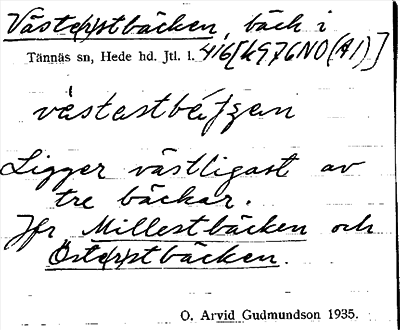 Väste(r)stbäcken, bäck i
Tännäs sn, Hede hd. Jtl. l. 416[k976NO(A1)]
västastbätʃen
Ligger västligast av
tre bäckar.
Jfr Millestbäcken och
Öste(r)stbäcken.
O. Arvid Gudmundson 1935.